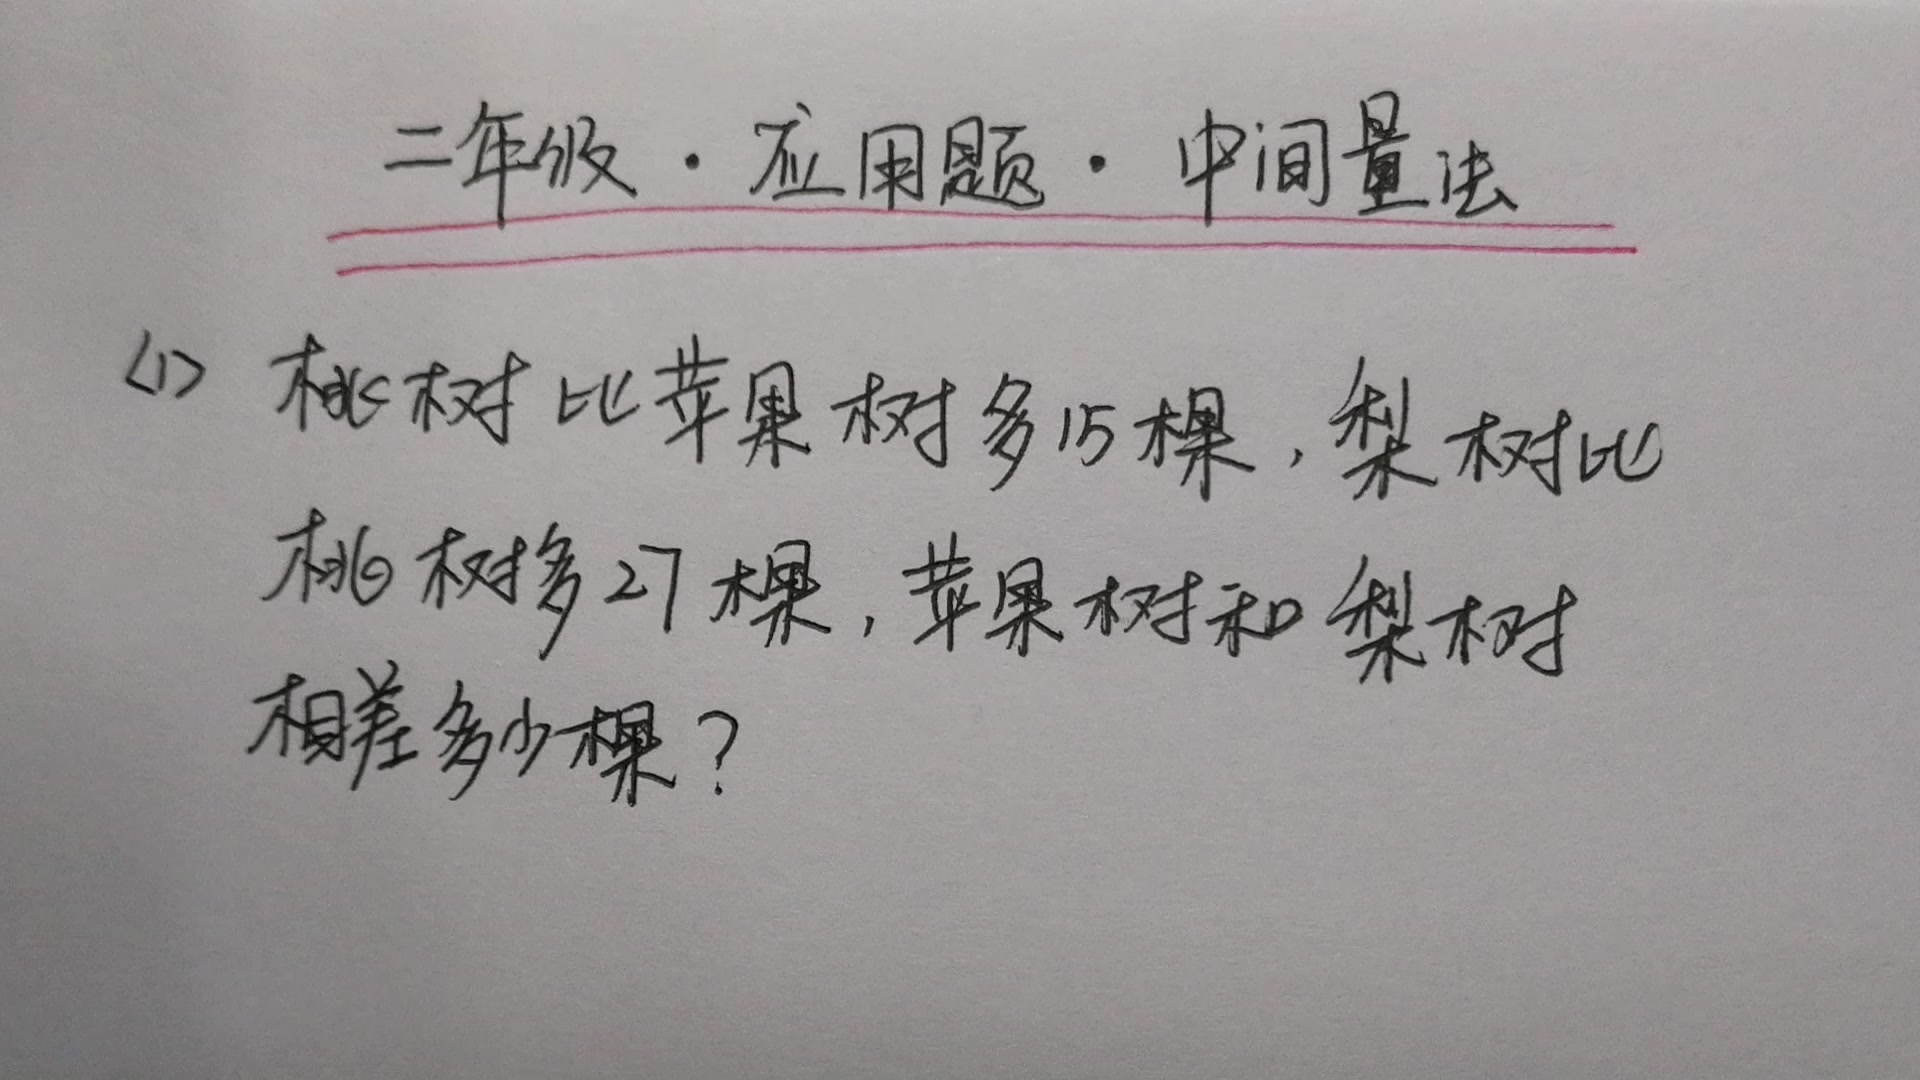 二年级·应用题·中间量法
<1> 桃树比苹果树多15棵,梨树比
桃树多27棵,苹果树和梨树
相差多少棵?